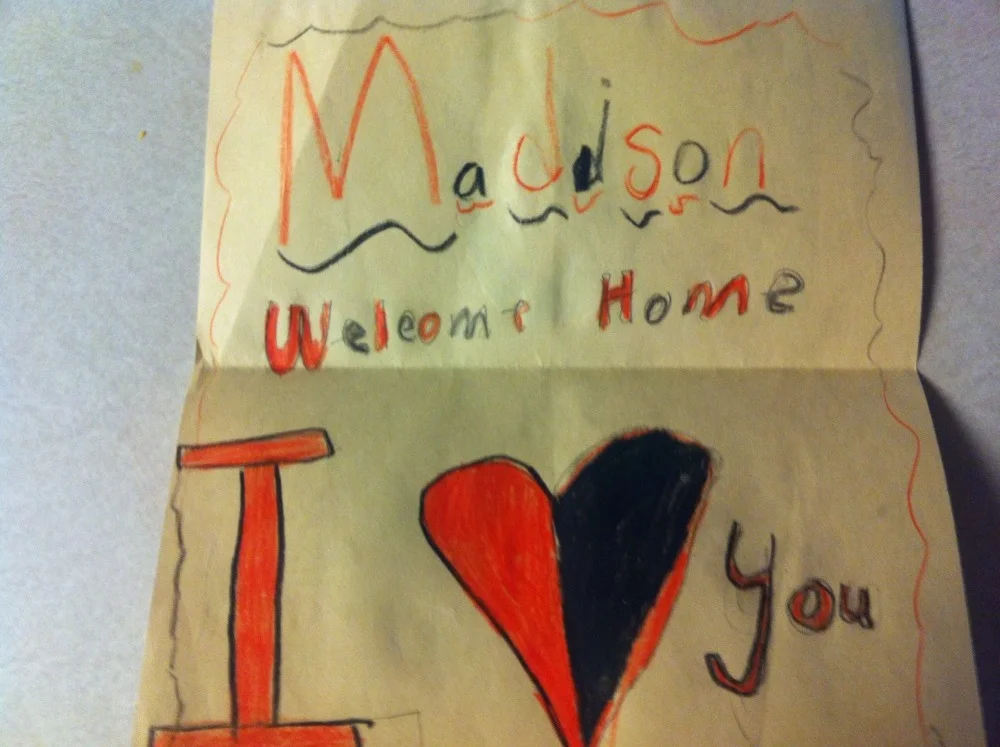 Madison
Welcome Home
I you